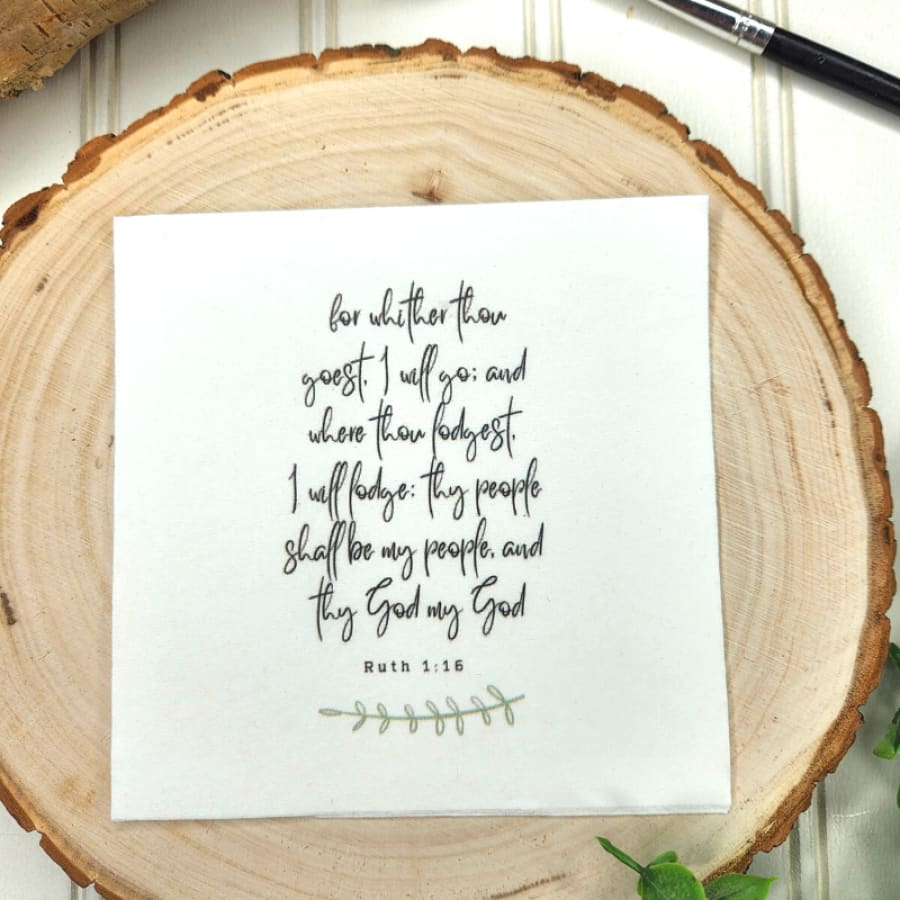 for whither thou
goest, I will go; and
where thou lodgest,
I will lodge: thy people
shall be my people, and
thy God my God
Ruth 1:16